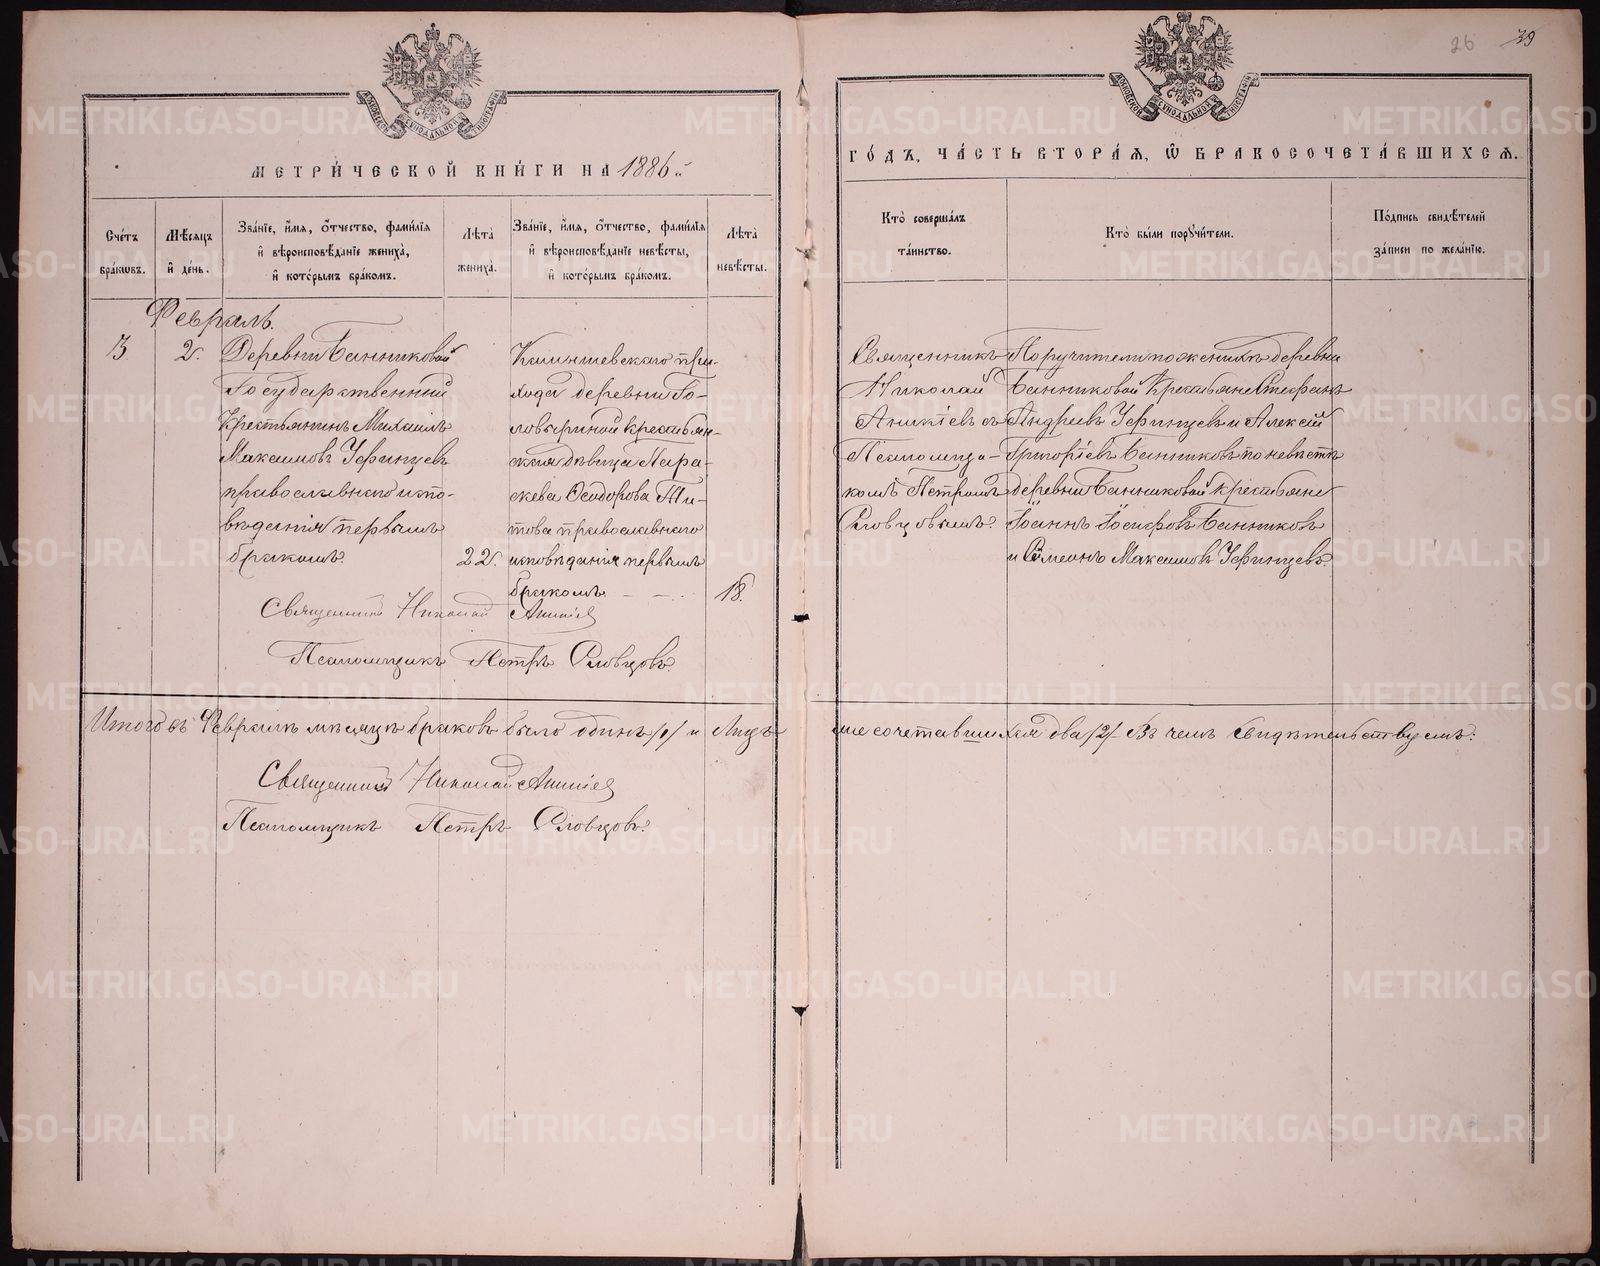 26 39
МЕТРИ́ЧЕСКОЙ КНИ́ГИ НА 1886й
ГО́ДЪ, ЧА́СТЬ ВТОРА́Я, Ѽ БРАКОСОЧЕТА́ВШИХСЯ.
Сче́тъ бра́кѡвъ.
Мѣ́сяцъ и҆ де́нь.
Зва́нїе, и҆́мѧ, ѻ҆́тчество, фами́лїѧ
и҆ вѣроисповѣ́данїе жениха̀,
и҆ кото́рымъ бра́комъ.
Лѣта̀ жениха̀.
Зва́нїе, и҆́мѧ, ѻ҆́тчество, фами́лїѧ
и҆ вѣроисповѣ́данїе невѣ́сты,
и҆ кото́рымъ бра́комъ.
Лѣта̀ невѣ́сты.
Кто̀ соверша́лъ
та́инство.
Кто̀ бы́ли поручи́тели.
По́дпись свидѣ́телей
за́писи по жела́нїю.
Февраль.
3. 2.
Деревни Банниковой
Государственный
Крестьянинъ Михаилъ
Максимовъ Уфинцевъ
православнаго испо-
вѣданія первымъ
бракомъ.
22.
Камышевскаго при-
хода деревни Го-
ловыриной крестьян-
ская дѣвица Пара-
скева Ѳеодорова Ти-
това православнаго
исповѣданія первымъ
бракомъ.
18.
Священникъ
Николай
Аникіевъ съ
Псаломщи-
комъ Петромъ
Словцовымъ.
Поручители по женихѣ деревни
Банниковой Крестьяне Стефанъ
Андреевъ Уфинцевъ и Алексѣй
Григоріевъ Банниковъ по невѣстѣ
деревни Банниковой крестьяне
Іоаннъ Іосифовъ Банниковъ
и Сѵмеонъ Максимовъ Уфинцевъ.
Священникъ Николай Аникіевъ
Псаломщикъ Петръ Словцовъ.
Итого въ Февралѣ мѣсяцѣ браковъ было одинъ /1/ а лицъ
сочетавшихся два /2/. Въ чемъ свидѣтельствуемъ:
Священникъ Николай Аникіевъ
Псаломщикъ Петръ Словцовъ.
METRIKI.GASO-URAL.RU